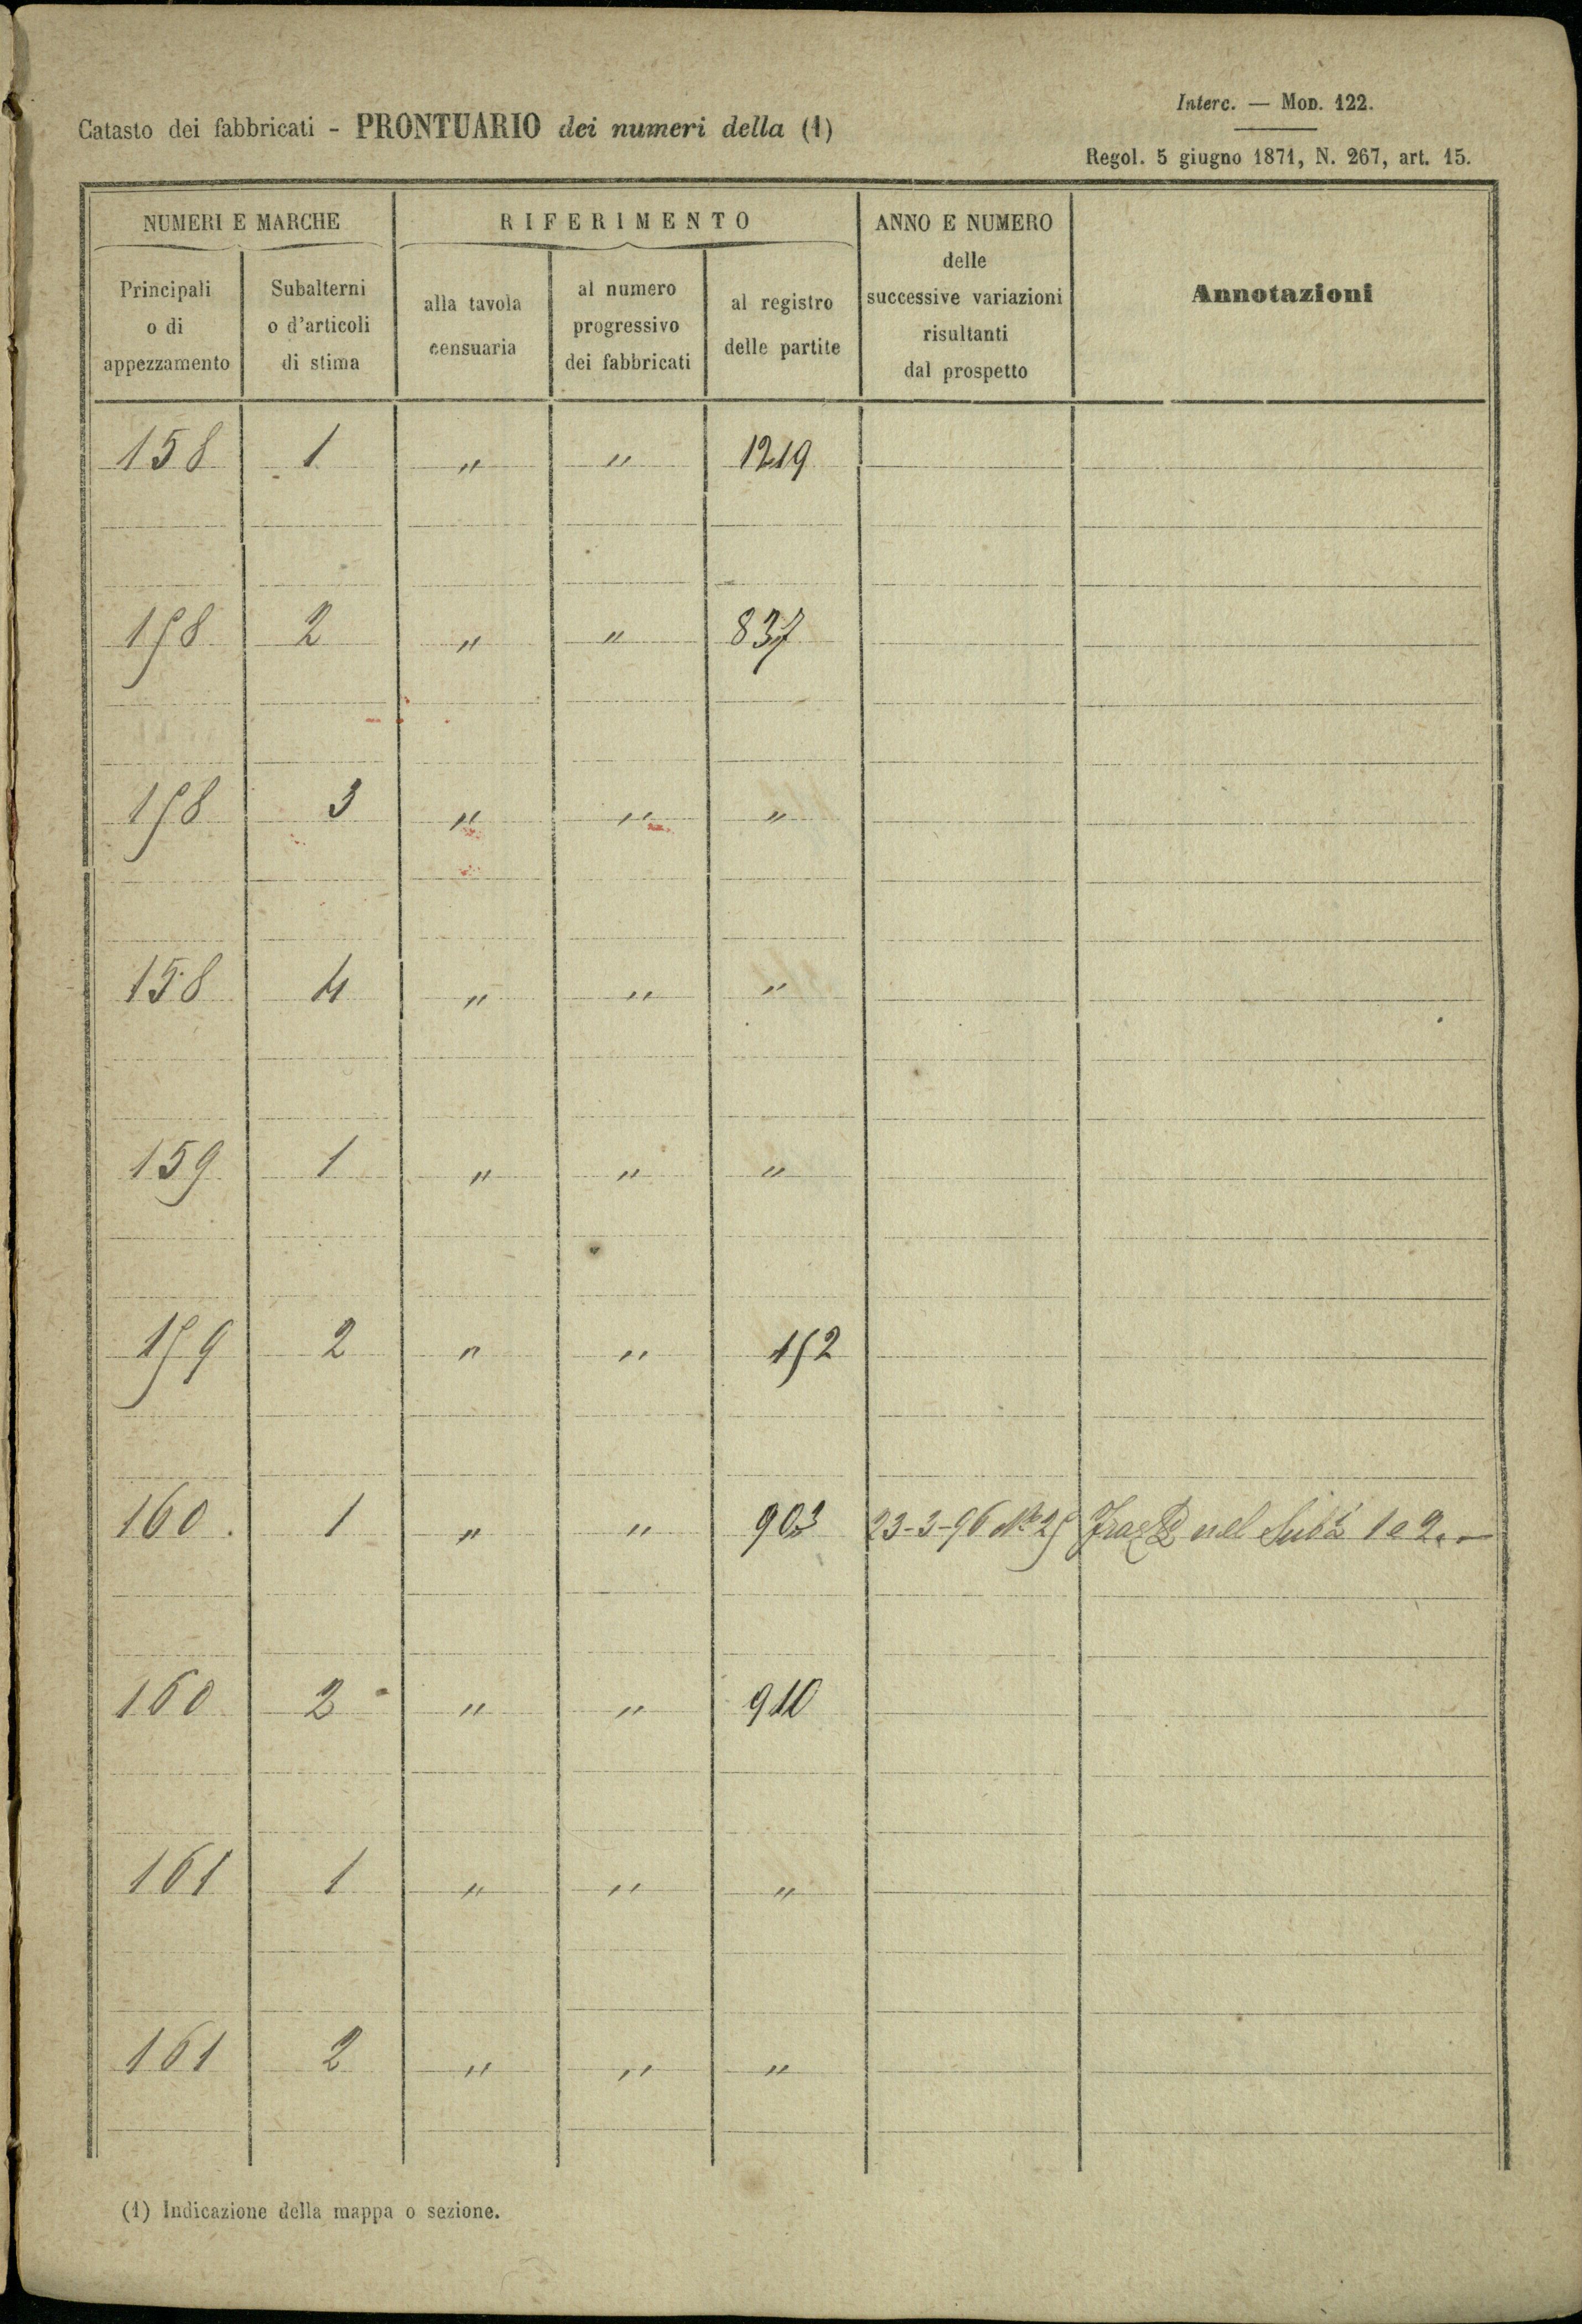 Interc. — Mod. 122.
Catasto dei fabbricati - PRONTUARIO dei numeri della (1)
Regol. 5 giugno 1871, N. 267, art. 15.
NUMERI E MARCHE
Principali
o di
appezzamento
Subalterni
o d'articoli
di stima
RIFERIMENTO
alla tavola
censuaria
al numero
progressivo
dei fabbricati
al registro
delle partite
ANNO E NUMERO
delle
successive variazioni
risultanti
dal prospetto
Annotazioni
158 1 " " 1219
158 2 " " 837
158 3 " " "
158 4 " " "
159 1 " " "
159 2 " " 152
160. 1 " " 903 23-3-96 N° 25 nel 1 e 2.-
160 2 " " 910
161 1 " " "
161 2 " " "
(1) Indicazione della mappa o sezione.